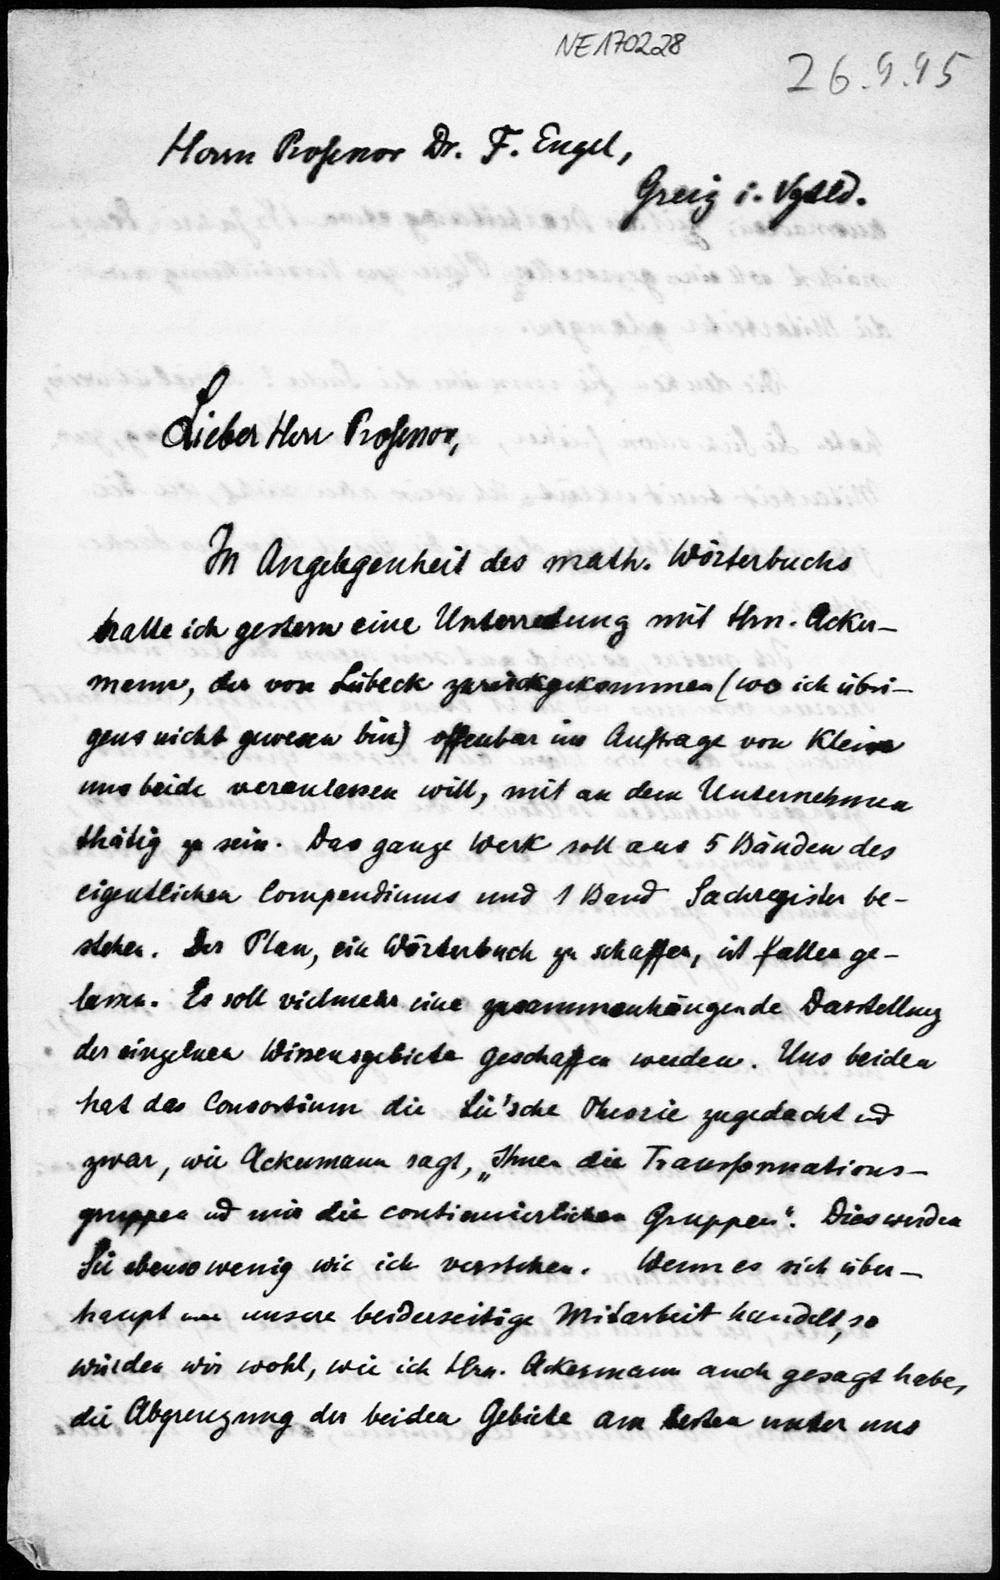 NE170228
26.9.95
Herrn Professor Dr. F. Engel,
Greiz i. Vgtld.
Lieber Herr Professor,
In Angelegenheit des math. Wörterbuchs
hatte ich gestern eine Unterredung mit Hrn. Acker-
mann, der von Lübeck zurückgekommen (wo ich übri-
gens nicht gewesen bin) offenbar im Auftrage von Klein
uns beide veranlassen will, mit an dem Unternehmen
thätig zu sein. Das ganze Werk soll aus 5 Bänden des
eigentlichen Compendiums und 1 Band Sachregister be-
stehen. Der Plan, ein Wörterbuch zu schaffen, ist fallen ge-
lassen. Es soll vielmehr eine zusammenhängende Darstellung
der einzelnen Wissensgebiete geschaffen werden. Uns beiden
hat das Consortium die Lie'sche Theorie zugedacht ud
zwar, wie Ackermann sagt, „Ihnen die Transformations-
gruppen ud mir die continuierlichen Gruppen“. Dies werden
Sie ebenso wenig wie ich verstehen. Wenn es sich über-
haupt um unsere beiderseitige Mitarbeit handelt, so
würden wir wohl, wie ich Hrn. Ackermann auch gesagt habe,
die Abgrenzung der beiden Gebiete am besten unter uns